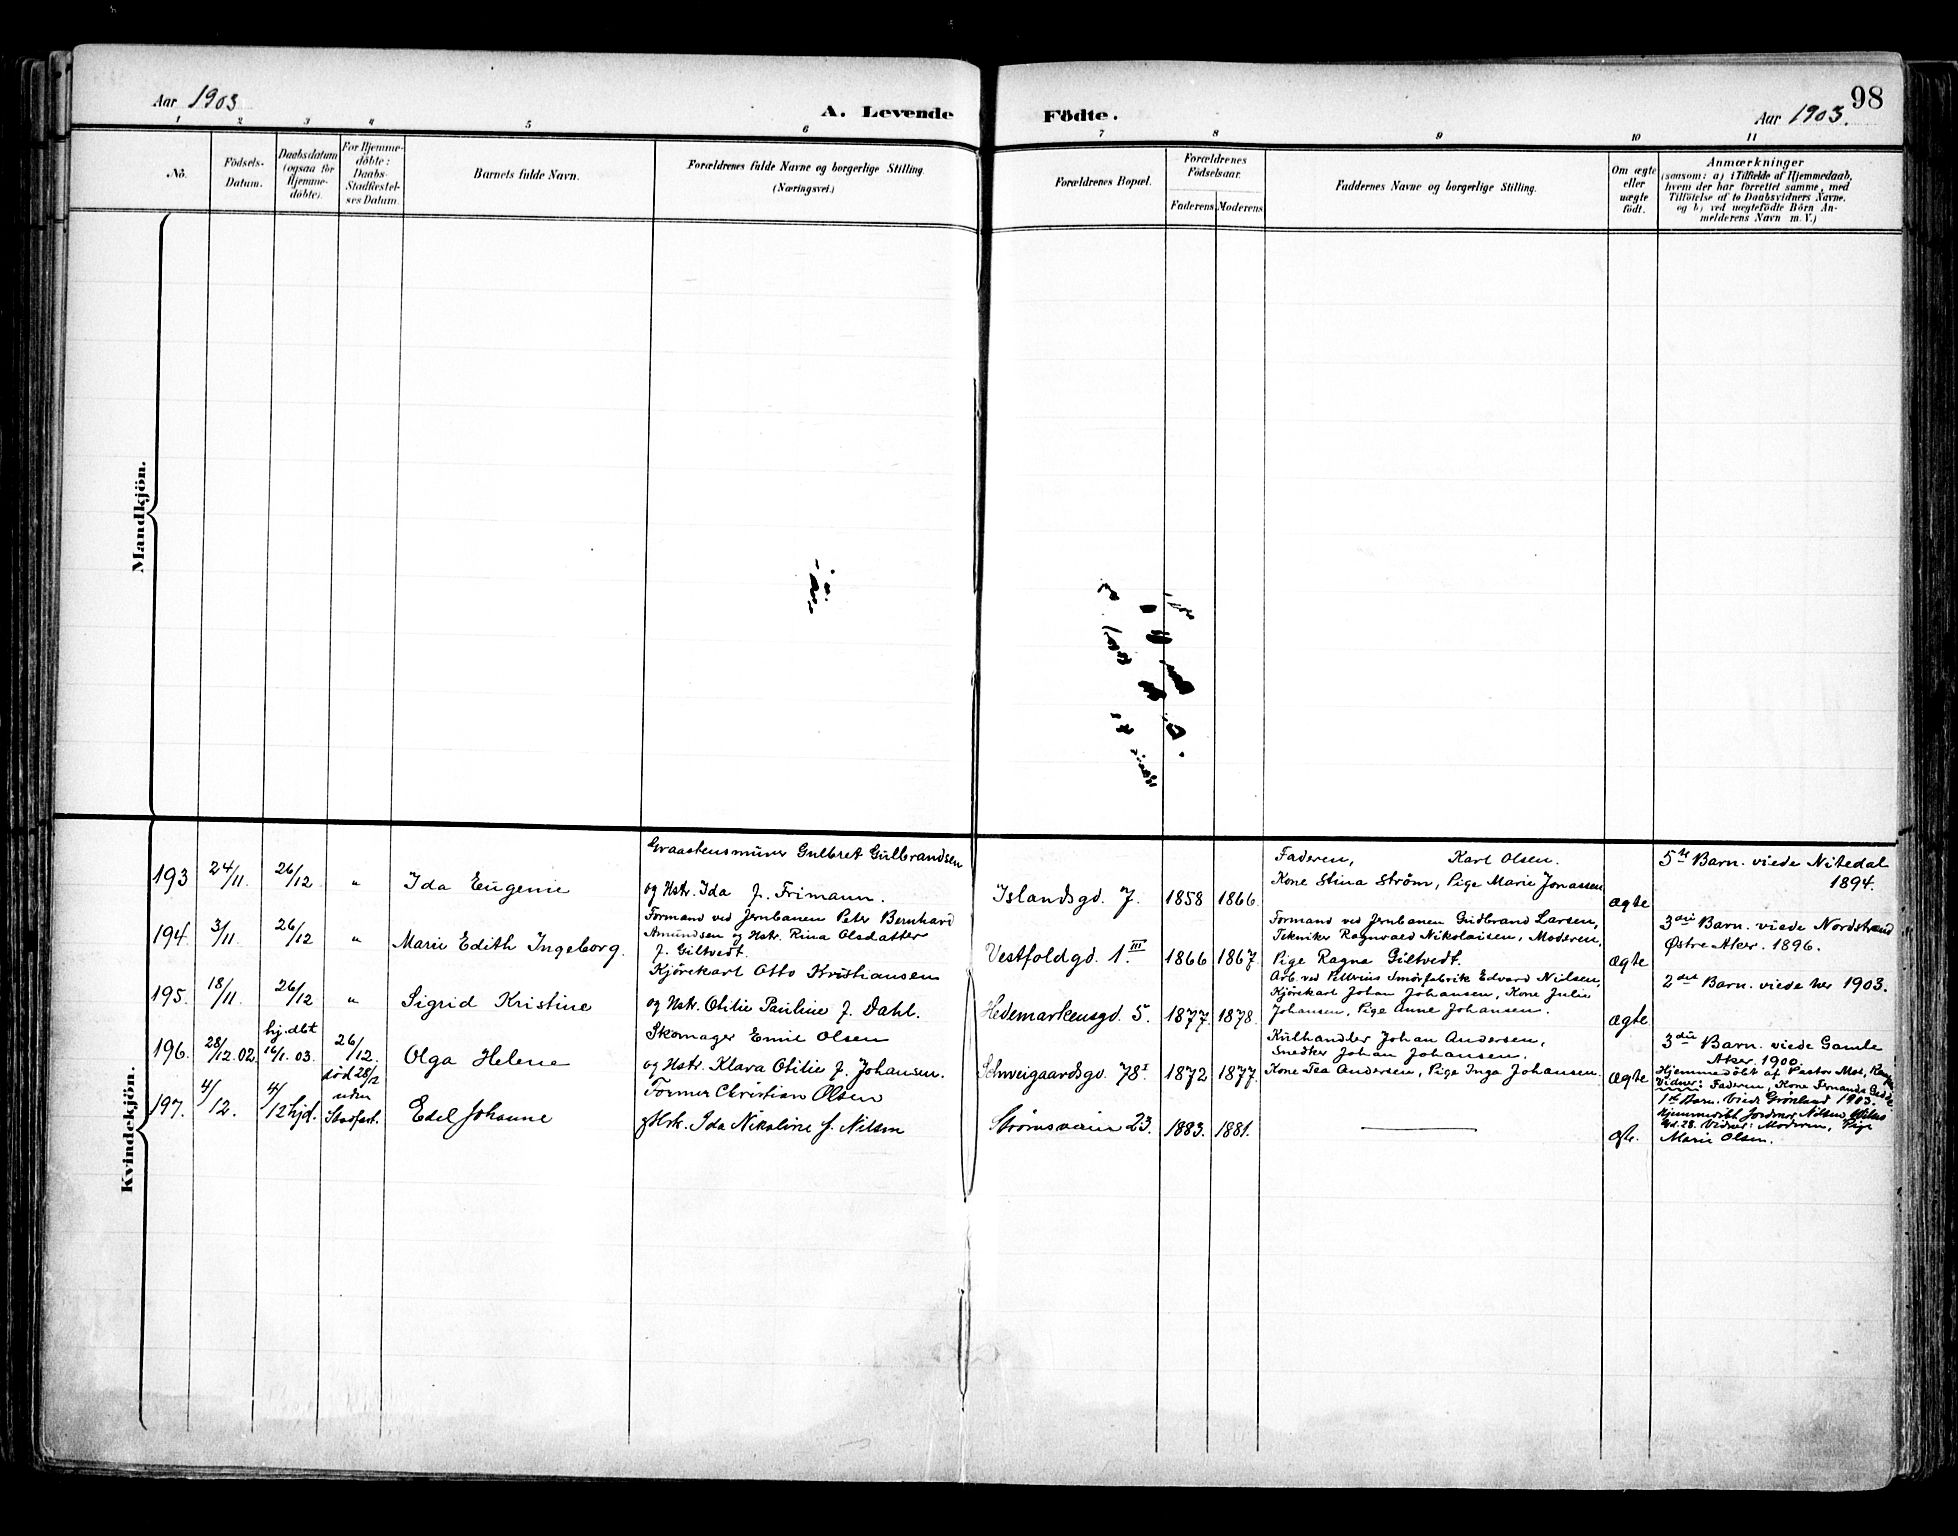 Aar 1903
A. Levende Födte.
Aar 1903.
98
1 2 3 4 5 6 7 8 9 10 11
No.
Födsels-Datum.
Daabsdatum (ogsaa for Hjemme-döbte).
For Hjemme-döbte: Daabs-Stadfæstel-ses Datum.
Barnets fulde Navn.
Forældrenes fulde Navne og borgerlige Stilling.
(Næringsvei.)
Forældrenes Bopæl.
Forældrenes Födselsaar.
Faderens Moderens
Faddernes Navne og borgerlige Stilling.
Om ægte eller uægte födt.
Anmærkninger
(saasom: a) i Tilfælde af Hjemmedaab,
hvem der har forrettet samme, med
Tilföielse af to Daabsvidners Navne,
og b) ved uægtefödte Börn An-
melderens Navn m. V.)
Mandkjön.
Kvindekjön.
193 24/11. 26/12. " Ida Eugenie
Graastensmurer Gulbret Gulbrandsen
og Hstr. Ida f. Frimann.
Islandsgd. 7. 1858 1866.
Faderen, Karl Olsen.
Kone Stina Ström, Pige Marie Jonassen
ægte
5te Barn. viede Nitedal
1894.
194 3/11. 26/12 " Marie Edith Ingeborg.
Formand ved Jernbanen Peter Bernhard
Amundsen og Hstr. Rina Olsdatter
f. Giltvedt.
Vestfoldgd. 1.III 1866 1867.
Formand ved Jernbanen Gudbrand Larsen,
Tekniker Ragnvald Nikolaisen, Moderen,
Pige Ragna Giltvedt.
ægte
3die Barn. viede Nordstrand
Østre Aker. 1896.
195. 18/11. 26/12 " Sigrid Kristine
Kjörekarl Otto Kristiansen
og Hstr. Otilie Pauline f. Dahl.
Hedemarkensgd. 5. 1877. 1878.
Arb. ved Pellerins Smörfabrik Edvard Nilsen,
Kjörekarl Johan Johansen, Kone Julie
Johansen, Pige Anne Johansen.
ægte
2det Barn. viede her 1903.
196. 28/12.02. hj.dbt 16/1.03. 26/12. Olga Helene
Skomager Emil Olsen
og Hstr. Klara Otilie f. Johansen.
Schweigaardsgd. 78I 1872 1877.
Kulhandler Johan Andersen,
Snedker Johan Johansen.
Kone Tea Andersen, Pige Inga Johansen.
ægte
3die Barn. viede Gamle
Aker. 1900.
Hjemmedöbt af Pastor
Vidner: Faderen, Kone
197. 4/12. 4/12 hjd. död 28/2 uden Stadfæst. Edel Johanne
Former Christian Olsen
g Hrk. Ida Nikoline f. Nilsen
Strömsveien 23. 1883. 1881.
ægte.
1ste Barn. Viede Grönland 1903.
Hjemmedöbt Jordmor Nilsen,
Gd. 28. Vidner: Moderen, Pige
Marie Olsen.